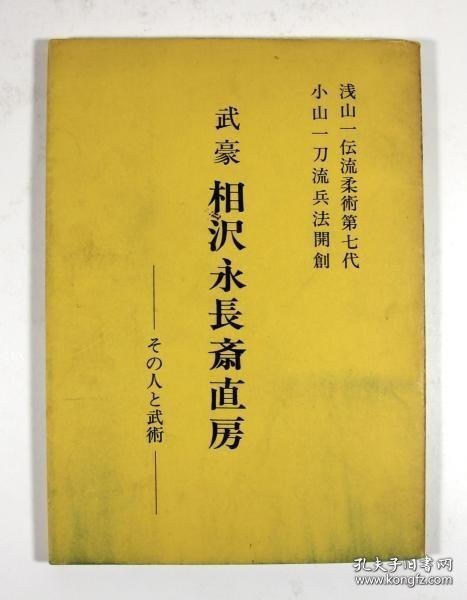 浅山一伝流柔術第七代
小山一刀流兵法開創
武豪 相沢永長斎直房
――その人と武術――
孔夫子旧书网
www.kongfz.com